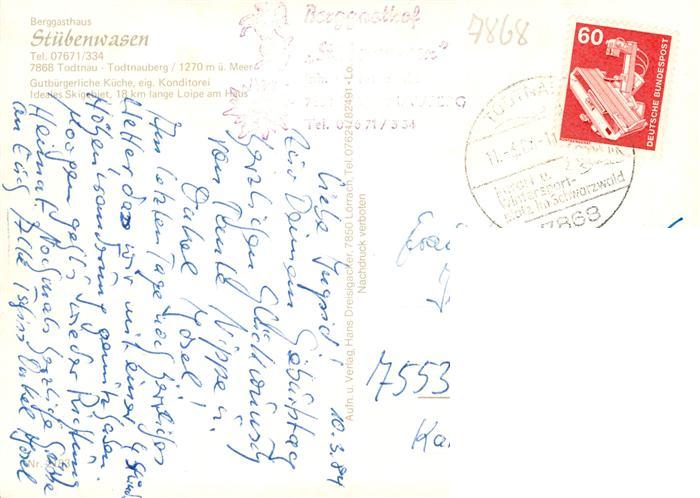 Berggasthaus
Stübenwasen
Tel. 07671/334
7868 Todtnau - Todtnauberg / 1270 m ü. Meer
Gutbürgerliche Küche, eig. Konditorei
Ideales Skigebiet, 18 km lange Loipe am Haus
Berggasthof
Tel. 07671/334
7868
60
DEUTSCHE BUNDESPOST
TODTNAU
Kurort u.
Wintersport-
platz im Schwarzwald
7868
Aufn. u. Verlag, Hans Dreisigacker, 7850 Lörrach, Tel. 07621/82491-Lo.
Nachdruck verboten
10.3.84
Liebe Ingrid!
Für Deinem Geburtstag
herzlichen Glückwünsch
von Tante Nippe u.
Onkel Josel!
Den letzten Tage noch herrliches
Wetter das wir mit einer 4 stünd
Höhenwanderung genutzt haben.
Morgen geht's wieder Richtung
Heimat. Nochmals herzliche Grüße
an Euch Alle Onkel Josel
Frau
7553
Nr.